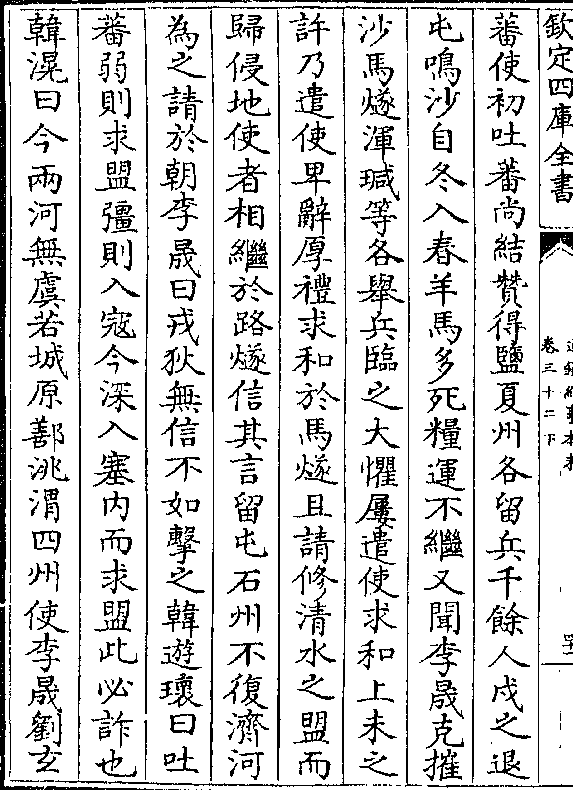 欽定四庫全書
通鑑紀事本末
卷三十二下
四十
蕃使初吐蕃尚結贊得鹽夏州各留兵千餘人戍之退
屯鳴沙自冬入春羊馬多死糧運不繼又聞李晟克摧
沙馬燧渾瑊等各舉兵臨之大懼屢遣使求和上未之
許乃遣使卑辭厚禮求和於馬燧且請修清水之盟而
歸侵地使者相繼於路燧信其言留屯石州不復濟河
為之請於朝李晟曰戎狄無信不如擊之韓遊瓌曰吐
蕃弱則求盟彊則入寇今深入塞内而求盟此必詐也
韓滉曰今兩河無虞若城原鄯洮渭四州使李晟劉玄